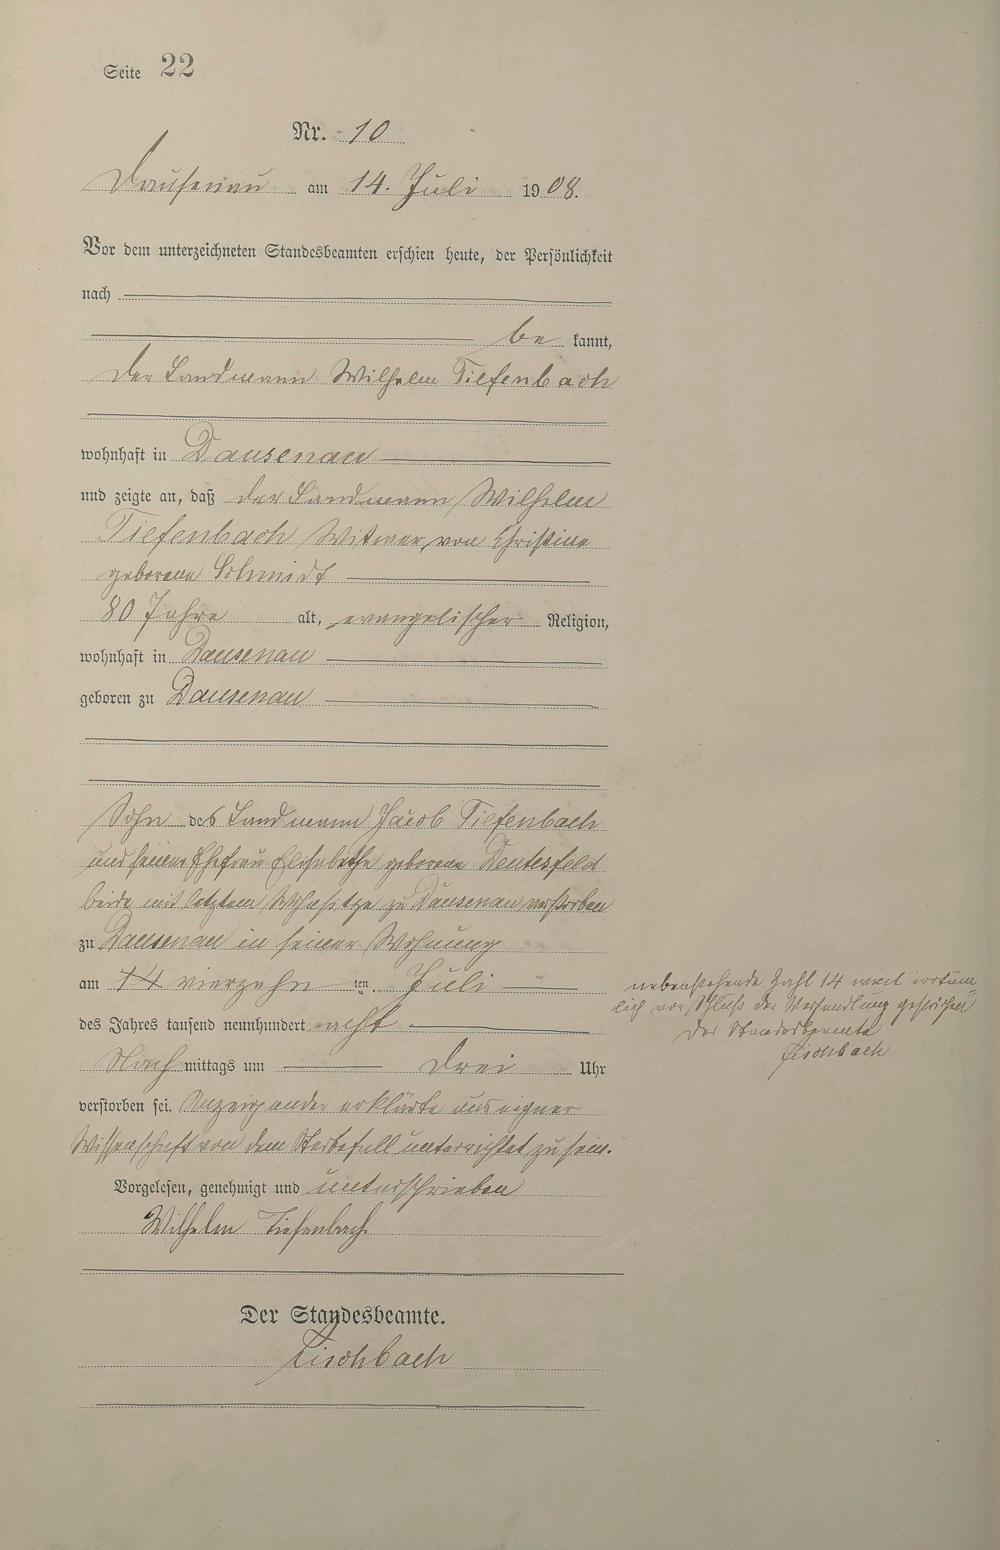 Seite 22
Nr. 10
Dausenau am 14. Juli 1908.
Vor dem unterzeichneten Standesbeamten erschien heute, der Persönlichkeit
nach
be kannt,
der Landmann Wilhelm Tiefenbach
wohnhaft in Dausenau
und zeigte an, daß der Landmann Wilhelm
Tiefenbach Witwer von Christine
geborene Schmidt
80 Jahre alt, evangelischer Religion,
wohnhaft in Dausenau
geboren zu Dausenau
Sohn des Landmann Jacob Tiefenbach
und seiner Ehefrau Elisabethe geborene
beide mit letztem Wohnsitze zu Dausenau verstorben
zu Dausenau in seiner Wohnung
am 14 vierzehn ten Juli
des Jahres tausend neunhundert acht
Nach mittags um drei Uhr
verstorben sei. Anzeigender erklärte aus eigner
Wissenschaft von dem Sterbefall unterrichtet zu sein.
Vorgelesen, genehmigt und unterschrieben
Wilhelm Tiefenbach
Der Standesbeamte.
Fischbach
nebenstehende Zahl 14 weil irrtüm-
lich vor Schluß der Verhandlung gestrichen
Der Standesbeamte
Fischbach